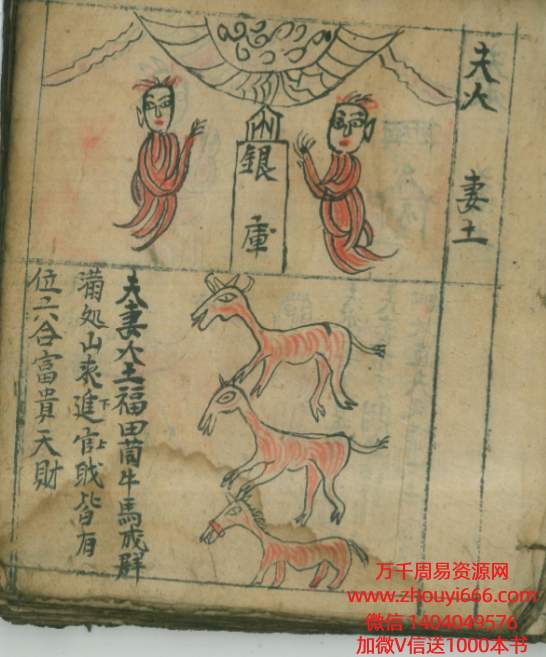 夫火 妻土
銀庫
夫妻火土福田茴牛馬成群
滿処山來進官戝皆有
下上
位六合富貴天財
万千周易资源网
www.zhouyi666.com
微信 1404049576
加微V信送1000本书